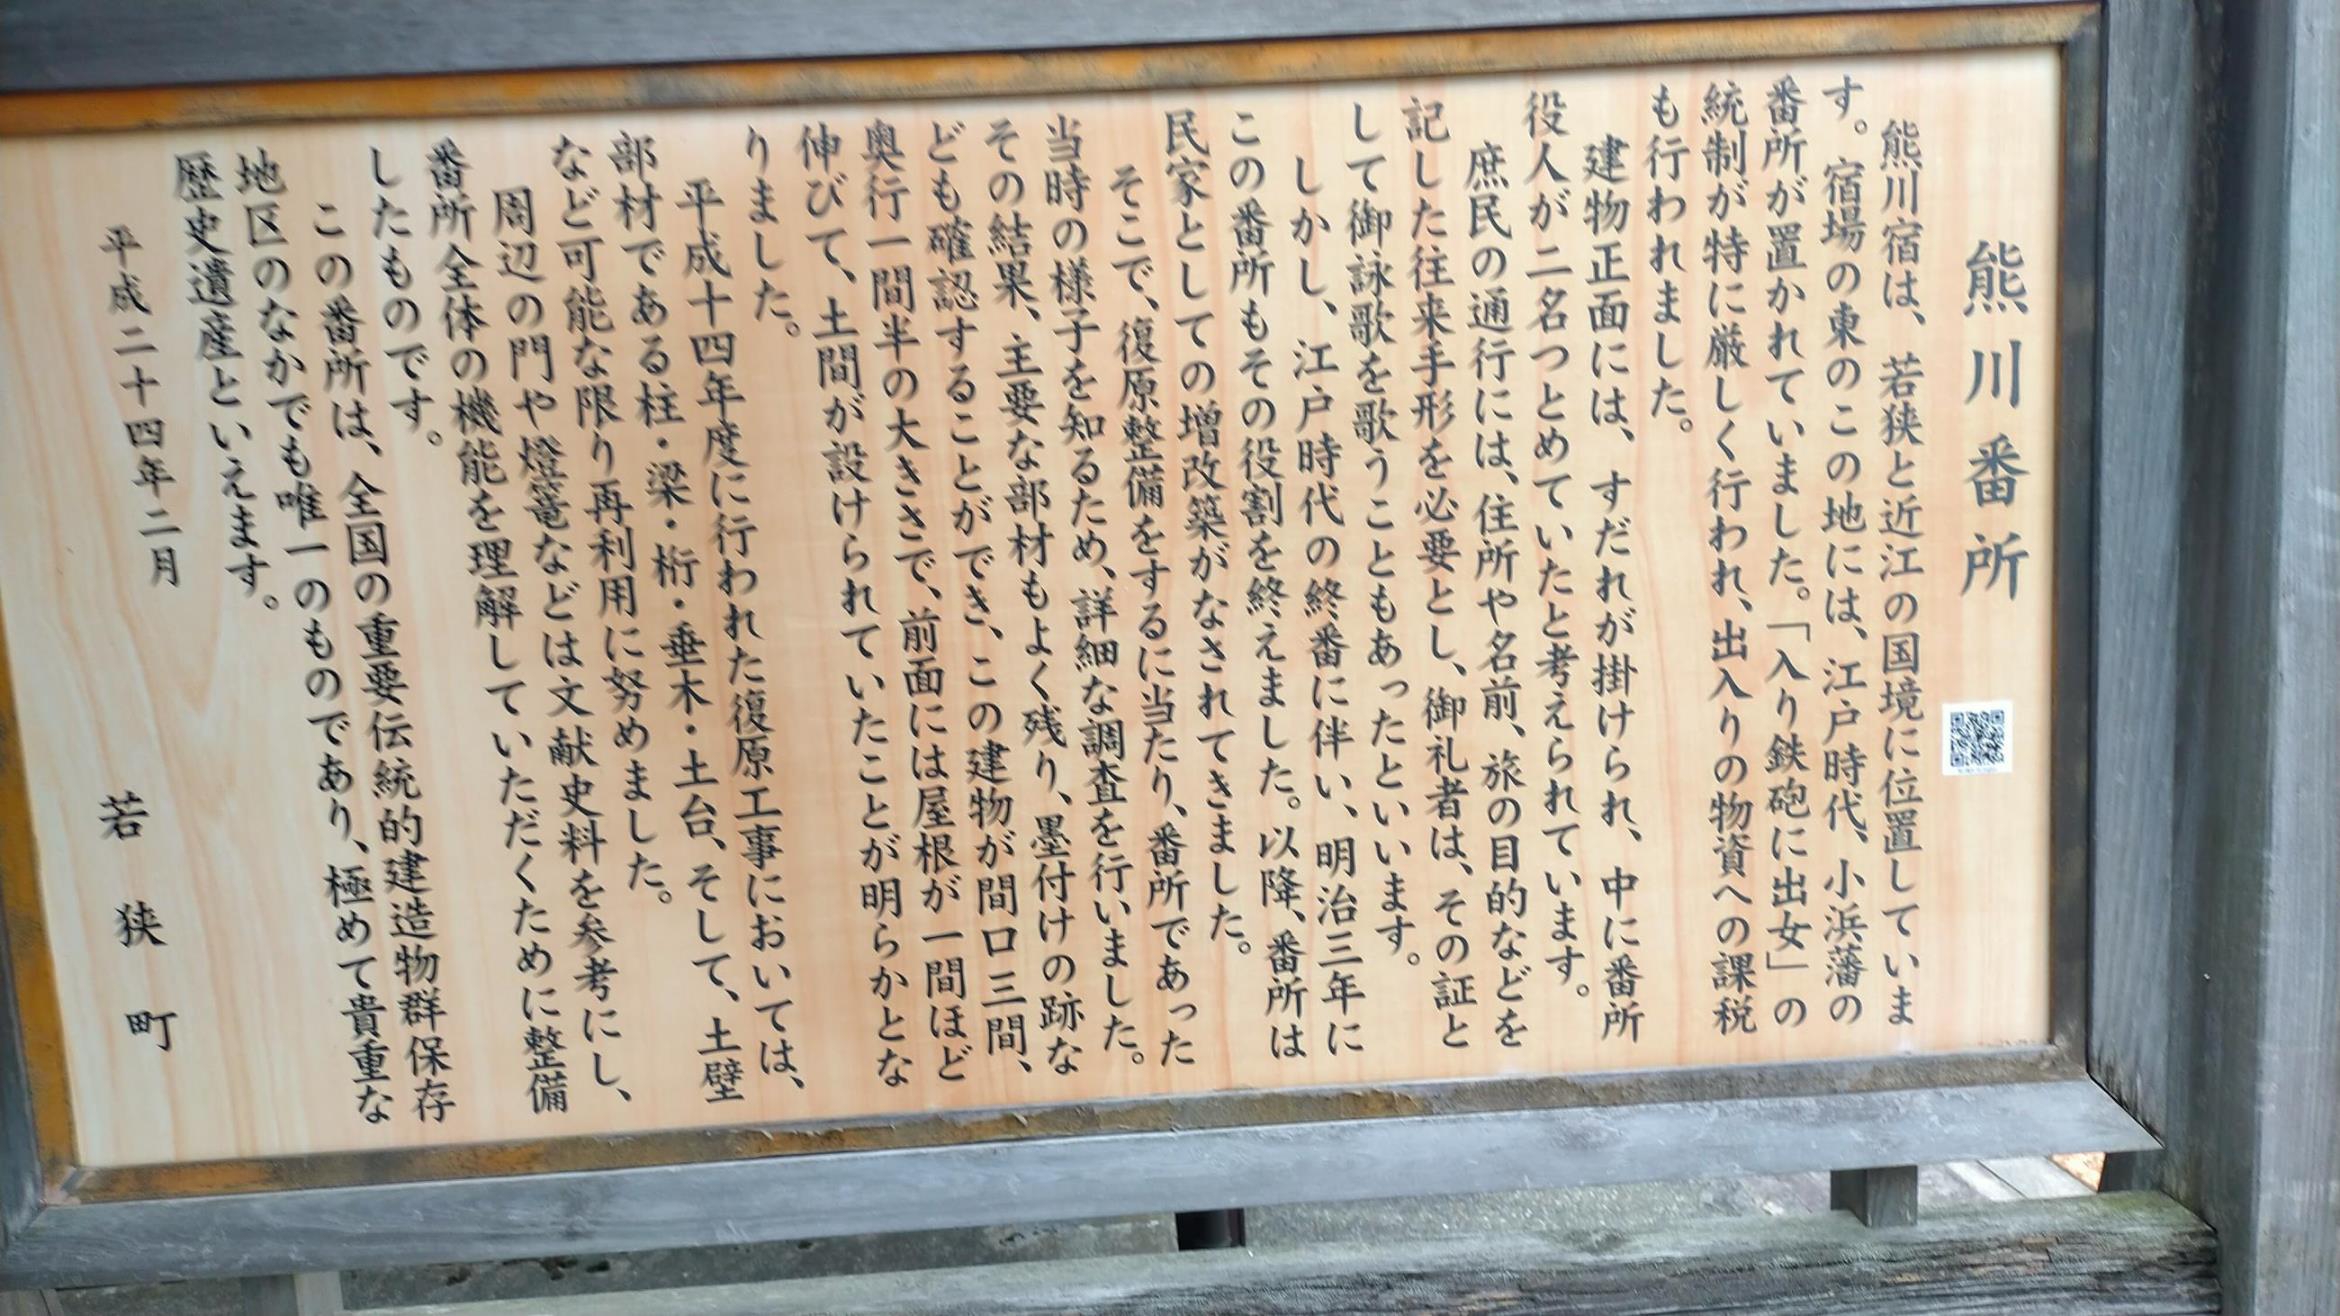 熊川番所
熊川宿は、若狭と近江の国境に位置していま
す。宿場の東のこの地には、江戸時代、小浜藩の
番所が置かれていました。「入り鉄砲に出女」の
統制が特に厳しく行われ、出入りの物資への課税
も行われました。
建物正面には、すだれが掛けられ、中に番所
役人が二名つとめていたと考えられています。
庶民の通行には、住所や名前、旅の目的などを
記した往来手形を必要とし、御礼者は、その証と
して御詠歌を歌うこともあったといいます。
しかし、江戸時代の終番に伴い、明治三年に
この番所もその役割を終えました。以降、番所は
民家としての増改築がなされてきました。
そこで、復原整備をするに当たり、番所であった
当時の様子を知るため、詳細な調査を行いました。
その結果、主要な部材もよく残り、墨付けの跡な
ども確認することができ、この建物が間口三間、
奥行一間半の大きさで、前面には屋根が一間ほど
伸びて、土間が設けられていたことが明らかとな
りました。
平成十四年度に行われた復原工事においては、
部材である柱・梁・桁・垂木・土台、そして、土壁
など可能な限り再利用に努めました。
周辺の門や燈篭などは文献史料を参考にし、
番所全体の機能を理解していただくために整備
したものです。
この番所は、全国の重要伝統的建造物群保存
地区のなかでも唯一のものであり、極めて貴重な
歴史遺産といえます。
平成二十四年二月
若狭町